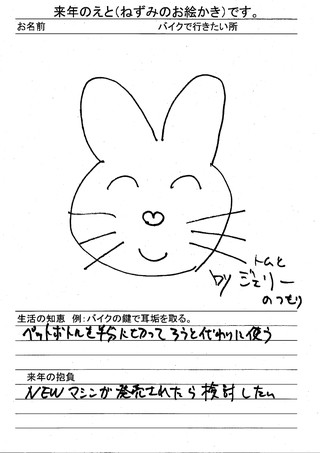 来年のえと(ねずみのお絵かき)です。
お名前　　　　　　バイクで行きたい所
トムと
by ジェリー
のつもり
生活の知恵　例：バイクの鍵で耳垢を取る。
ペットボトルを半分に切ってろうと代わりに使う
来年の抱負
NEWマシンが発売されたら検討したい